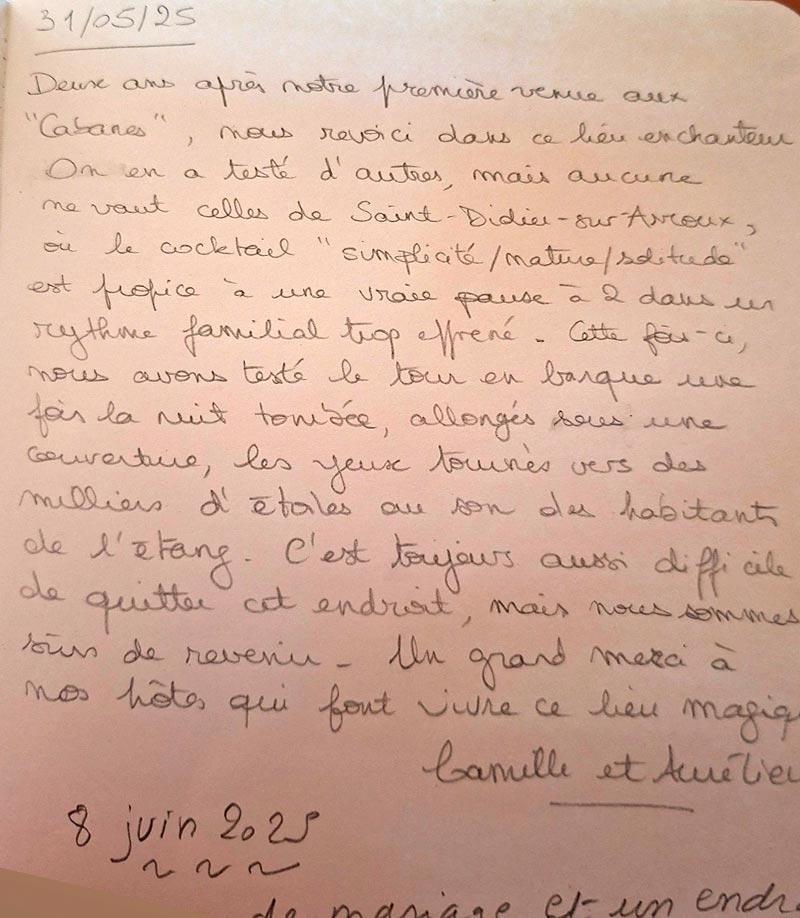 31/05/25
Deux ans après notre première venue aux
"Cabanes", nous revoici dans ce lieu enchanteur
On en a testé d'autres, mais aucune
ne vaut celles de Saint-Didier-sur-Arroux,
où le cocktail "simplicité/nature/solitude"
est propice à une vraie pause à 2 dans un
rythme familial trop effréné. Cette fois-ci,
nous avons testé le tour en barque une
fois la nuit tombée, allongés sous une
couverture, les yeux tournés vers des
milliers d'étoiles au son des habitants
de l'étang. C'est toujours aussi difficile
de quitter cet endroit, mais nous sommes
sûrs de revenir - Un grand merci à
nos hôtes qui font vivre ce lieu magiq
Camille et Aurélien
8 juin 2025
de mariage et un endr